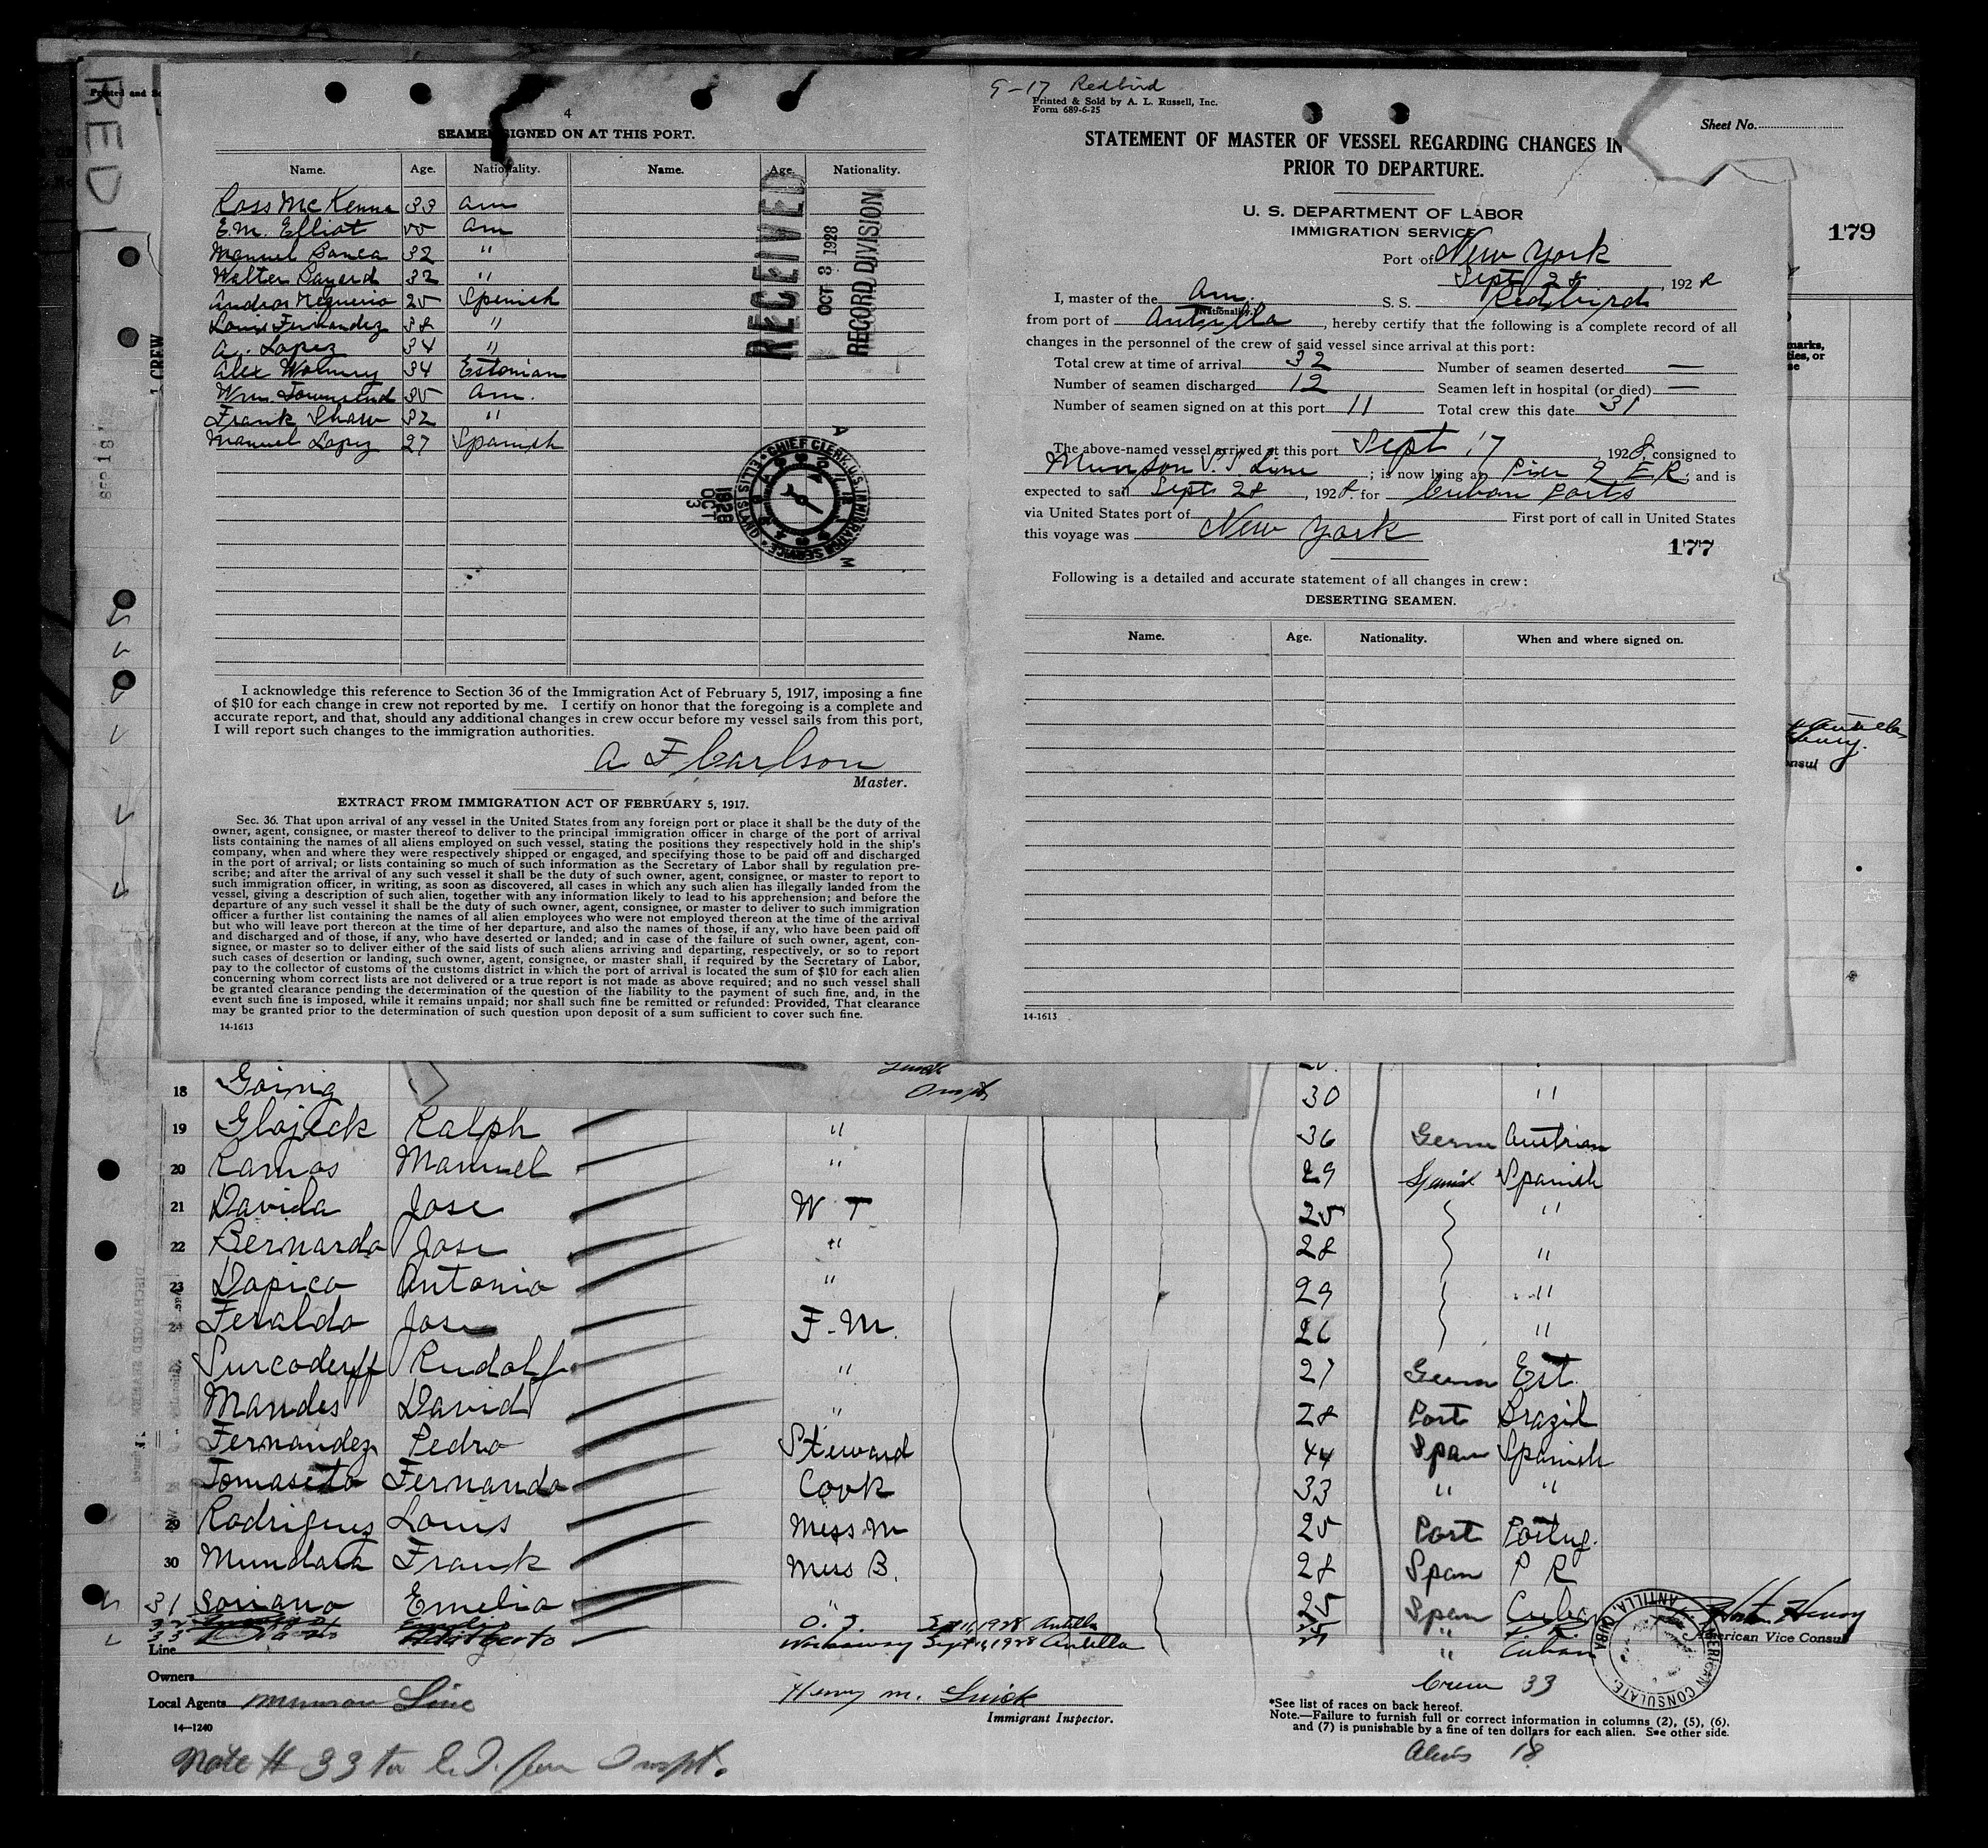 RED
Printed and
4
SEAMEN SIGNED ON AT THIS PORT.
Name. Age. Nationality. Name. Age. Nationality.
Ross McKenna 33 am
E.M. Elliot am
Manuel 32 "
Walter Bayard 32 "
25 Spanish
Louis Fernandez 38 "
A. Lopez 34 "
Alex 34 Estonian
Wm. Townsend 35 am.
Frank Shaw 32 "
Manuel Lopez 27 Spanish
RECEIVED
OCT 3 1928
RECORD DIVISION
CHIEF CLERK, U.S. IMMIGRATION SERVICE ELLIS ISLAND
1928 OCT 3
A M
I acknowledge this reference to Section 36 of the Immigration Act of February 5, 1917, imposing a fine
of $10 for each change in crew not reported by me. I certify on honor that the foregoing is a complete and
accurate report, and that, should any additional changes in crew occur before my vessel sails from this port,
I will report such changes to the immigration authorities.
A F Carlson
Master.
EXTRACT FROM IMMIGRATION ACT OF FEBRUARY 5, 1917.
Sec. 36. That upon arrival of any vessel in the United States from any foreign port or place it shall be the duty of the
owner, agent, consignee, or master thereof to deliver to the principal immigration officer in charge of the port of arrival
lists containing the names of all aliens employed on such vessel, stating the positions they respectively hold in the ship's
company, when and where they were respectively shipped or engaged, and specifying those to be paid off and discharged
in the port of arrival; or lists containing so much of such information as the Secretary of Labor shall by regulation pre-
scribe; and after the arrival of any such vessel it shall be the duty of such owner, agent, consignee, or master to report to
such immigration officer, in writing, as soon as discovered, all cases in which any such alien has illegally landed from the
vessel, giving a description of such alien, together with any information likely to lead to his apprehension; and before the
departure of any such vessel it shall be the duty of such owner, agent, consignee, or master to deliver to such immigration
officer a further list containing the names of all alien employees who were not employed thereon at the time of the arrival
but who will leave port thereon at the time of her departure, and also the names of those, if any, who have been paid off
and discharged and of those, if any, who have deserted or landed; and in case of the failure of such owner, agent, con-
signee, or master so to deliver either of the said lists of such aliens arriving and departing, respectively, or so to report
such cases of desertion or landing, such owner, agent, consignee, or master shall, if required by the Secretary of Labor,
pay to the collector of customs of the customs district in which the port of arrival is located the sum of $10 for each alien
concerning whom correct lists are not delivered or a true report is not made as above required; and no such vessel shall
be granted clearance pending the determination of the question of the liability to the payment of such fine, and, in the
event such fine is imposed, while it remains unpaid; nor shall such fine be remitted or refunded: Provided, That clearance
may be granted prior to the determination of such question upon deposit of a sum sufficient to cover such fine.
14-1613
9-17 Redbird
Printed & Sold by A. L. Russell, Inc.
Form 689-6-25
Sheet No.
STATEMENT OF MASTER OF VESSEL REGARDING CHANGES IN
PRIOR TO DEPARTURE.
U. S. DEPARTMENT OF LABOR
IMMIGRATION SERVICE
179
Port of New York
Sept 28, 1928
I, master of the Am. S. S. Redbird
Nationality.
from port of Antilla, hereby certify that the following is a complete record of all
changes in the personnel of the crew of said vessel since arrival at this port:
Total crew at time of arrival 32 Number of seamen deserted —
Number of seamen discharged 12 Seamen left in hospital (or died) —
Number of seamen signed on at this port 11 Total crew this date 31
The above-named vessel arrived at this port Sept 17 1928, consigned to
Munson S.S Line; is now lying at Pier 9 E R; and is
expected to sail Sept 28, 1928 for Cuban Ports
via United States port of First port of call in United States
this voyage was New York
177
Following is a detailed and accurate statement of all changes in crew:
DESERTING SEAMEN.
Name. Age. Nationality. When and where signed on.
14-1613
18 Going 30 "
19 Glajeck Ralph " 36 Germ Austrian
20 Ramos Manuel " 29 Spanish Spanish
21 Davila Jose W T 25 "
22 Bernardo Jose " 28 "
23 Dopico Antonio " 29 "
24 Feraldo Jose F.M. 26 "
Surcoderff Rudolf " 27 Germ Est.
Mandes David " 28 Port Brazil
Fernandez Pedro Steward 44 Span Spanish
28 Tomaseto Fernando Cook 33 " "
29 Rodriguez Louis Mess m 25 Port Portug.
30 Mundara Frank Mess B. 28 Span P R
31 Soriano Emelio " 25 Span Cuban
32 O. S. Sept 11, 1928 Antilla
33 Workaway Sept 11, 1928 Antilla " Cuban
Line
Owners
Local Agents Munson Line
14—1240
Henry M. Quick
Immigrant Inspector.
Henry
American Vice Consul
AMERICAN CONSULATE. ANTILLA, CUBA
Crew 33
*See list of races on back hereof.
Note.—Failure to furnish full or correct information in columns (2), (5), (6).
and (7) is punishable by a fine of ten dollars for each alien. See other side.
Note # 33 Inspt.
Aliens 18